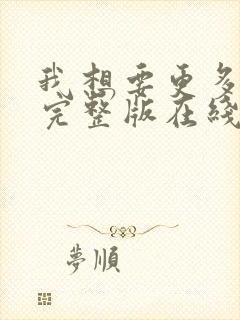 我想要更多
完整版在线
夢順